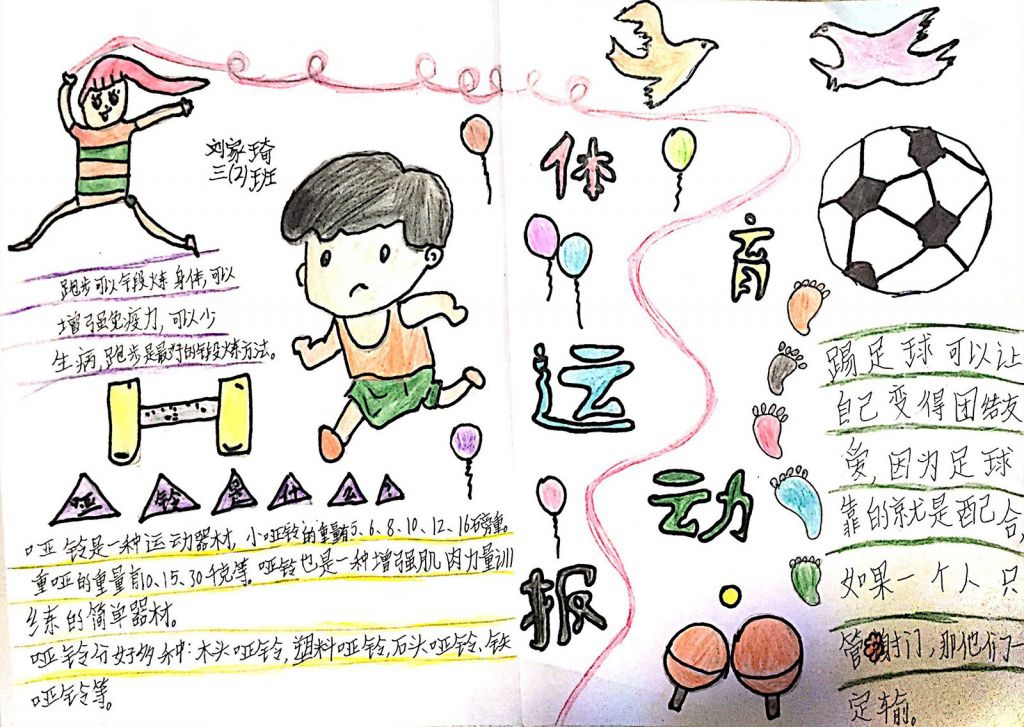 刘家琦
三(2)班
跑步可以锻炼身体,可以
增强免疫力,可以少
生病,跑步是最好的锻炼方法。
哑铃是什么?
哑铃是一种运动器材,小哑铃的重量有5、6、8、10、12、16磅重。
重哑的重量有10、15、30千克等。哑铃也是一种增强肌肉力量训
练的简单器材。
哑铃分好多种:木头哑铃,塑料哑铃,石头哑铃、铁
哑铃等。
体
育
运
动
报
踢足球可以让
自己变得团结友
爱,因为足球
靠的就是配合,
如果一个人只
管射门,那他们一
定输。